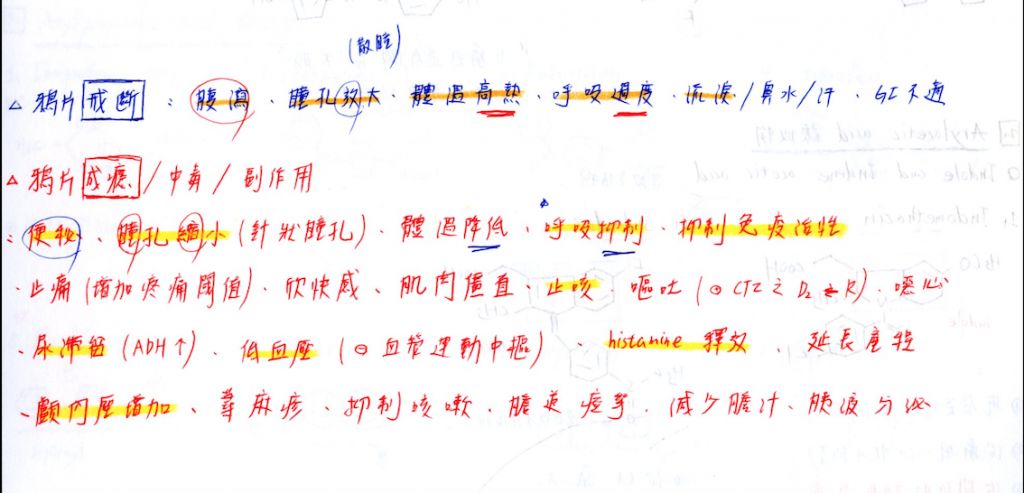 (散瞳)
△ 鴉片戒斷：腹瀉、瞳孔放大、體溫高熱、呼吸過度、流淚/鼻水/汗、GI不適
△ 鴉片成癮/中毒/副作用
：便秘、瞳孔縮小(針狀瞳孔)、體溫降低、呼吸抑制、抑制免疫活性
、止痛(增加疼痛閾值)、欣快感、肌肉僵直、止咳、嘔吐(⊕CTZ之D₂ R)、噁心
、尿滯留(ADH↑)、低血壓(⊖血管運動中樞)、histamine釋放、延長產程
、顱內壓增加、蕁麻疹、抑制咳嗽、膽道痙攣、減少膽汁、胰液分泌